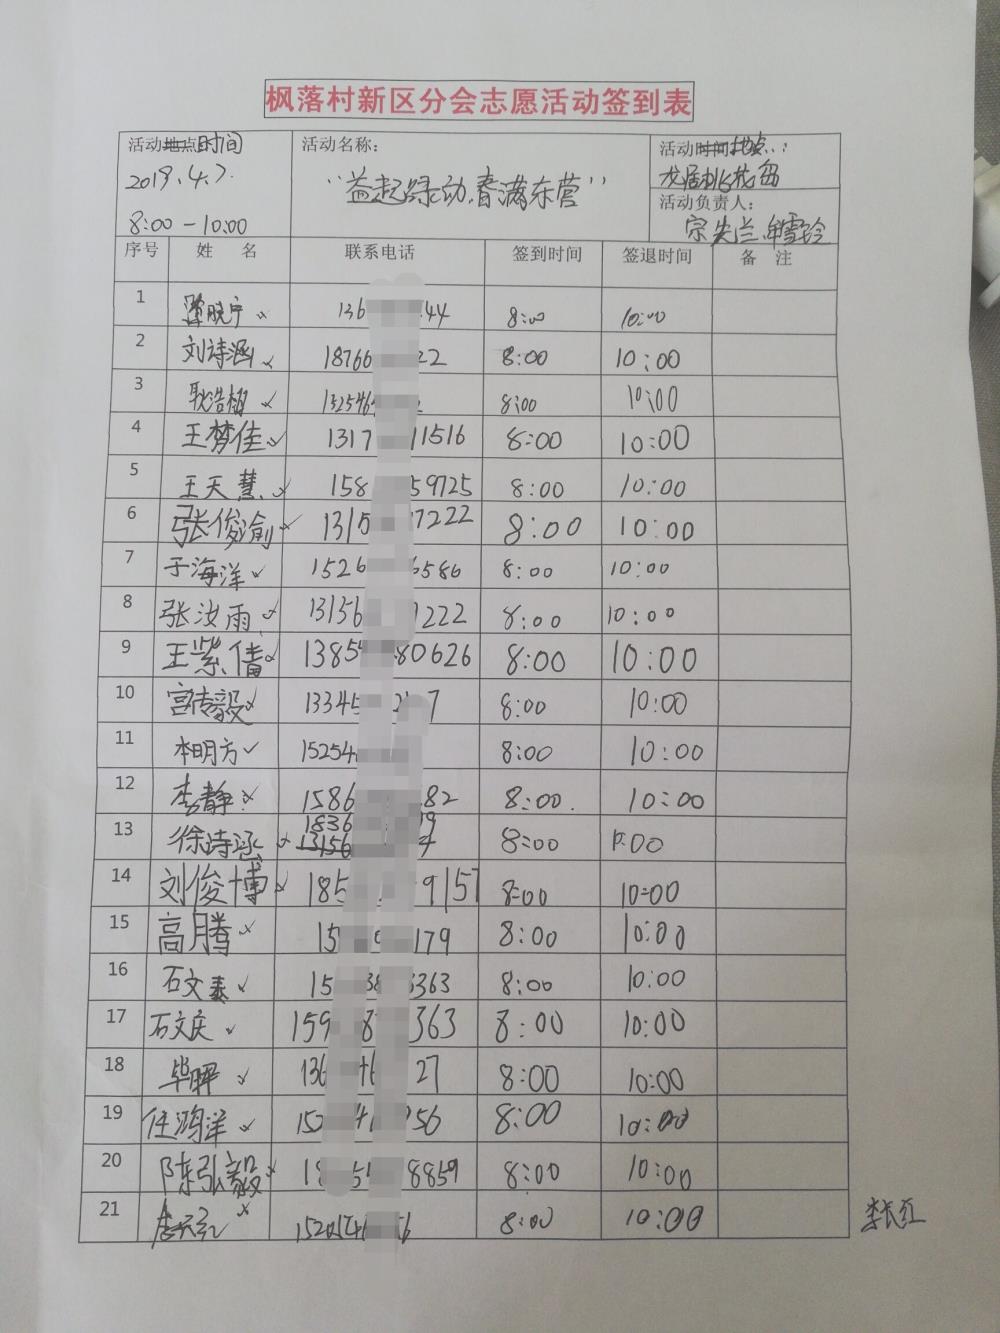 枫落村新区分会志愿活动签到表
活动地点时间 活动名称： 活动时间地点：
2019.4.7. "益起绿动.春满东营" 龙居桃花岛
8:00-10:00 活动负责人：
序号 姓 名 联系电话 签到时间 签退时间 备 注
1 晓宁 136 44 8:00 10:00
2 刘诗涵 18766 22 8:00 10:00
3 耿浩楠 132546 2 8:00 10:00
4 王梦佳 1317 11516 8:00 10:00
5 王天慧 158 59725 8:00 10:00
6 张俊渝 1315 7222 8:00 10:00
7 于海洋 1526 6586 8:00 10:00
8 张汝雨 13156 1222 8:00 10:00
9 王紫倩 1385 80626 8:00 10:00
10 宫传毅 13345 7 8:00 10:00
11 明方 15254 8:00 10:00
12 李静 1586 82 8:00 10:00
1836 19
13 徐诗涵 13156 8:00 10:00
14 刘俊博 185 9157 8:00 10:00
15 高腾 15 179 8:00 10:00
16 石文泰 15 38 3363 8:00 10:00
17 石文庆 159 8 363 8:00 10:00
18 毕晔 136 46 27 8:00 10:00
19 任鸿洋 152 4 56 8:00 10:00
20 陈弘毅 18 5 8859 8:00 10:00
21 152 54 6 8:00 10:00 李长红